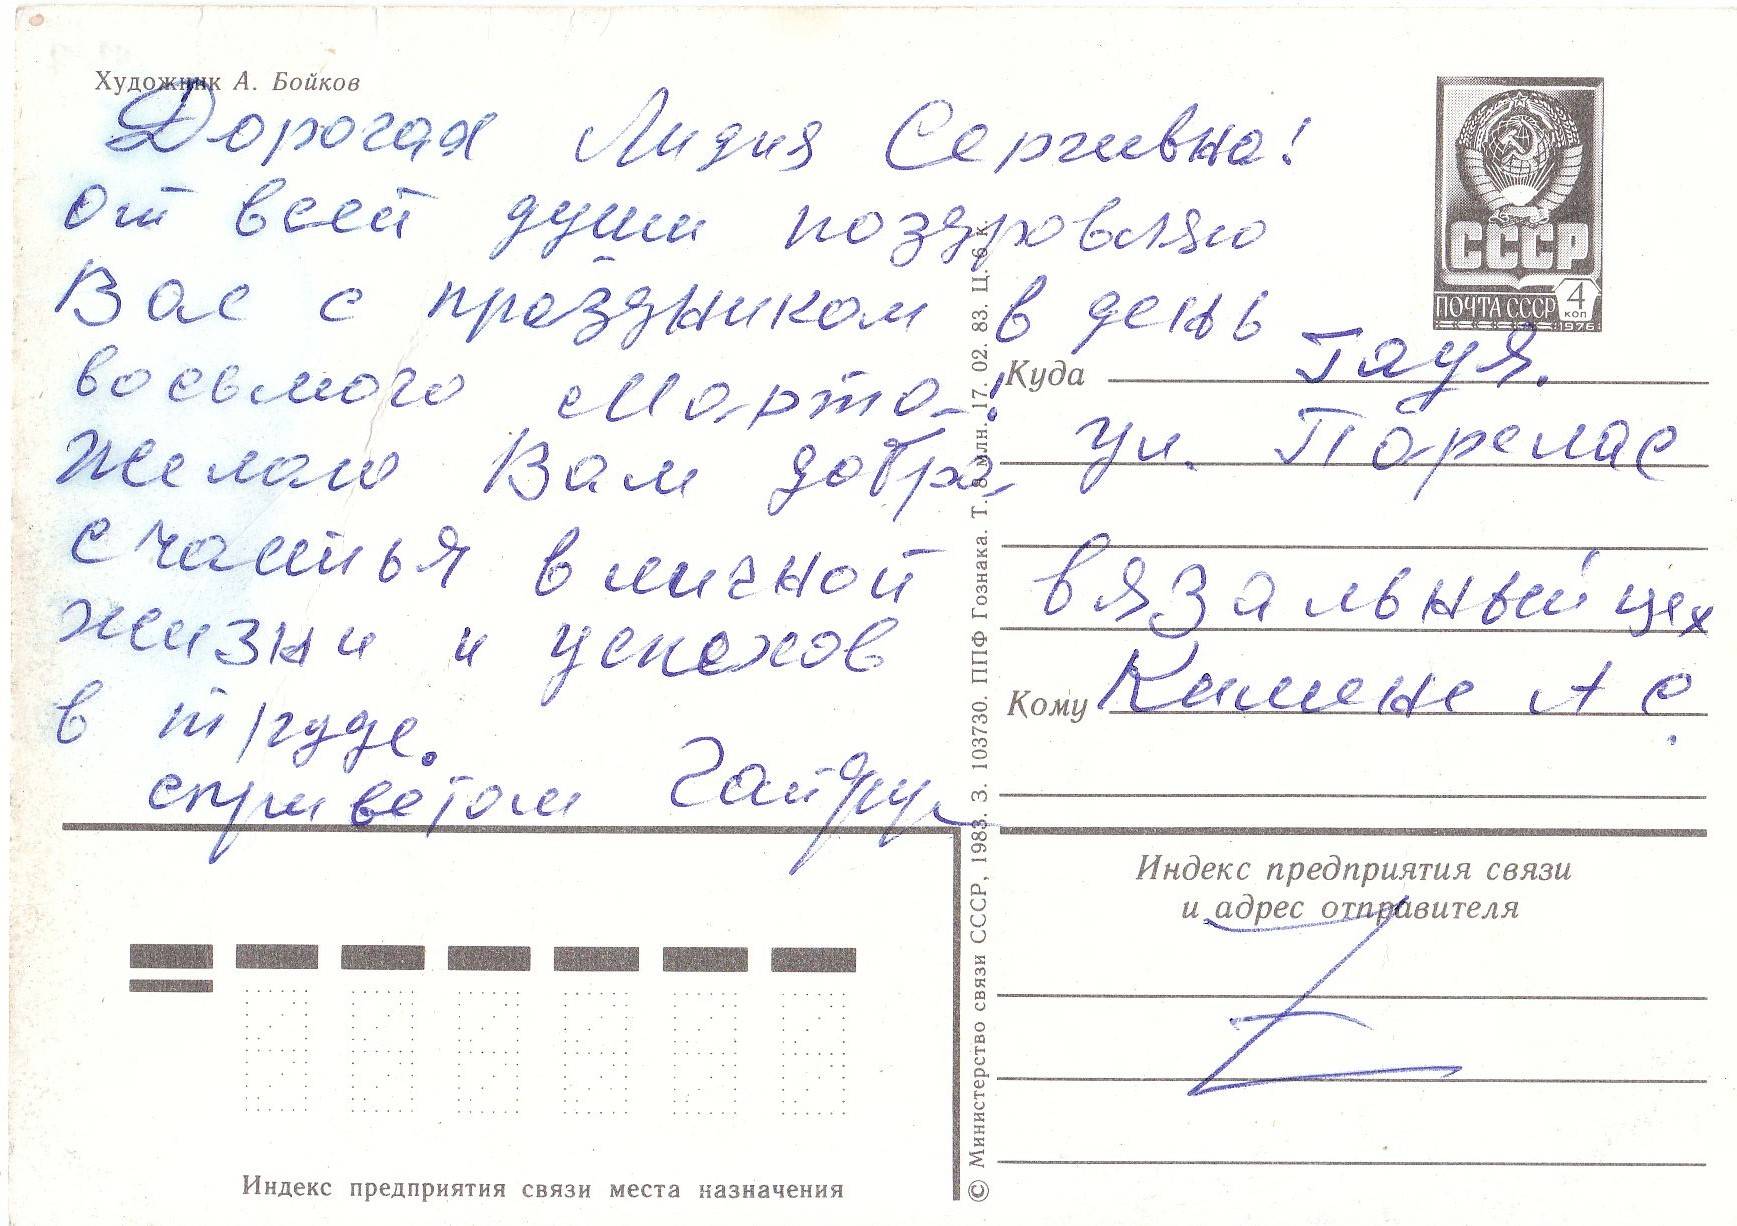 Художник А. Бойков
Дорогая Лидия Сергивна!
от всей души поздровляю
Вас с праздником в день
восьмого Марта!
Желаю Вам добра,
счастья в личной
жизни и успехов
в труде.
с приветом
СССР
ПОЧТА СССР 4 коп
1976
Куда Гауя.
ул. Парелас
вязальный цех
Кому Кимене А С.
Индекс предприятия связи
и адрес отправителя
Индекс предприятия связи места назначения
© Министерство связи СССР, 1983. З. 103730. ППФ Гознака. Т. 8 млн. 17. 02. 83. Ц. 6 к.